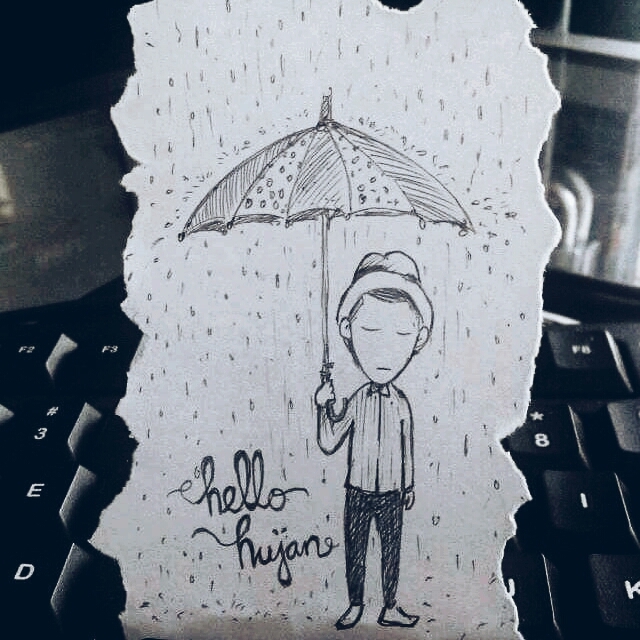 hello
hujan
F2
F3
#
3
E
D
*
8
I
K